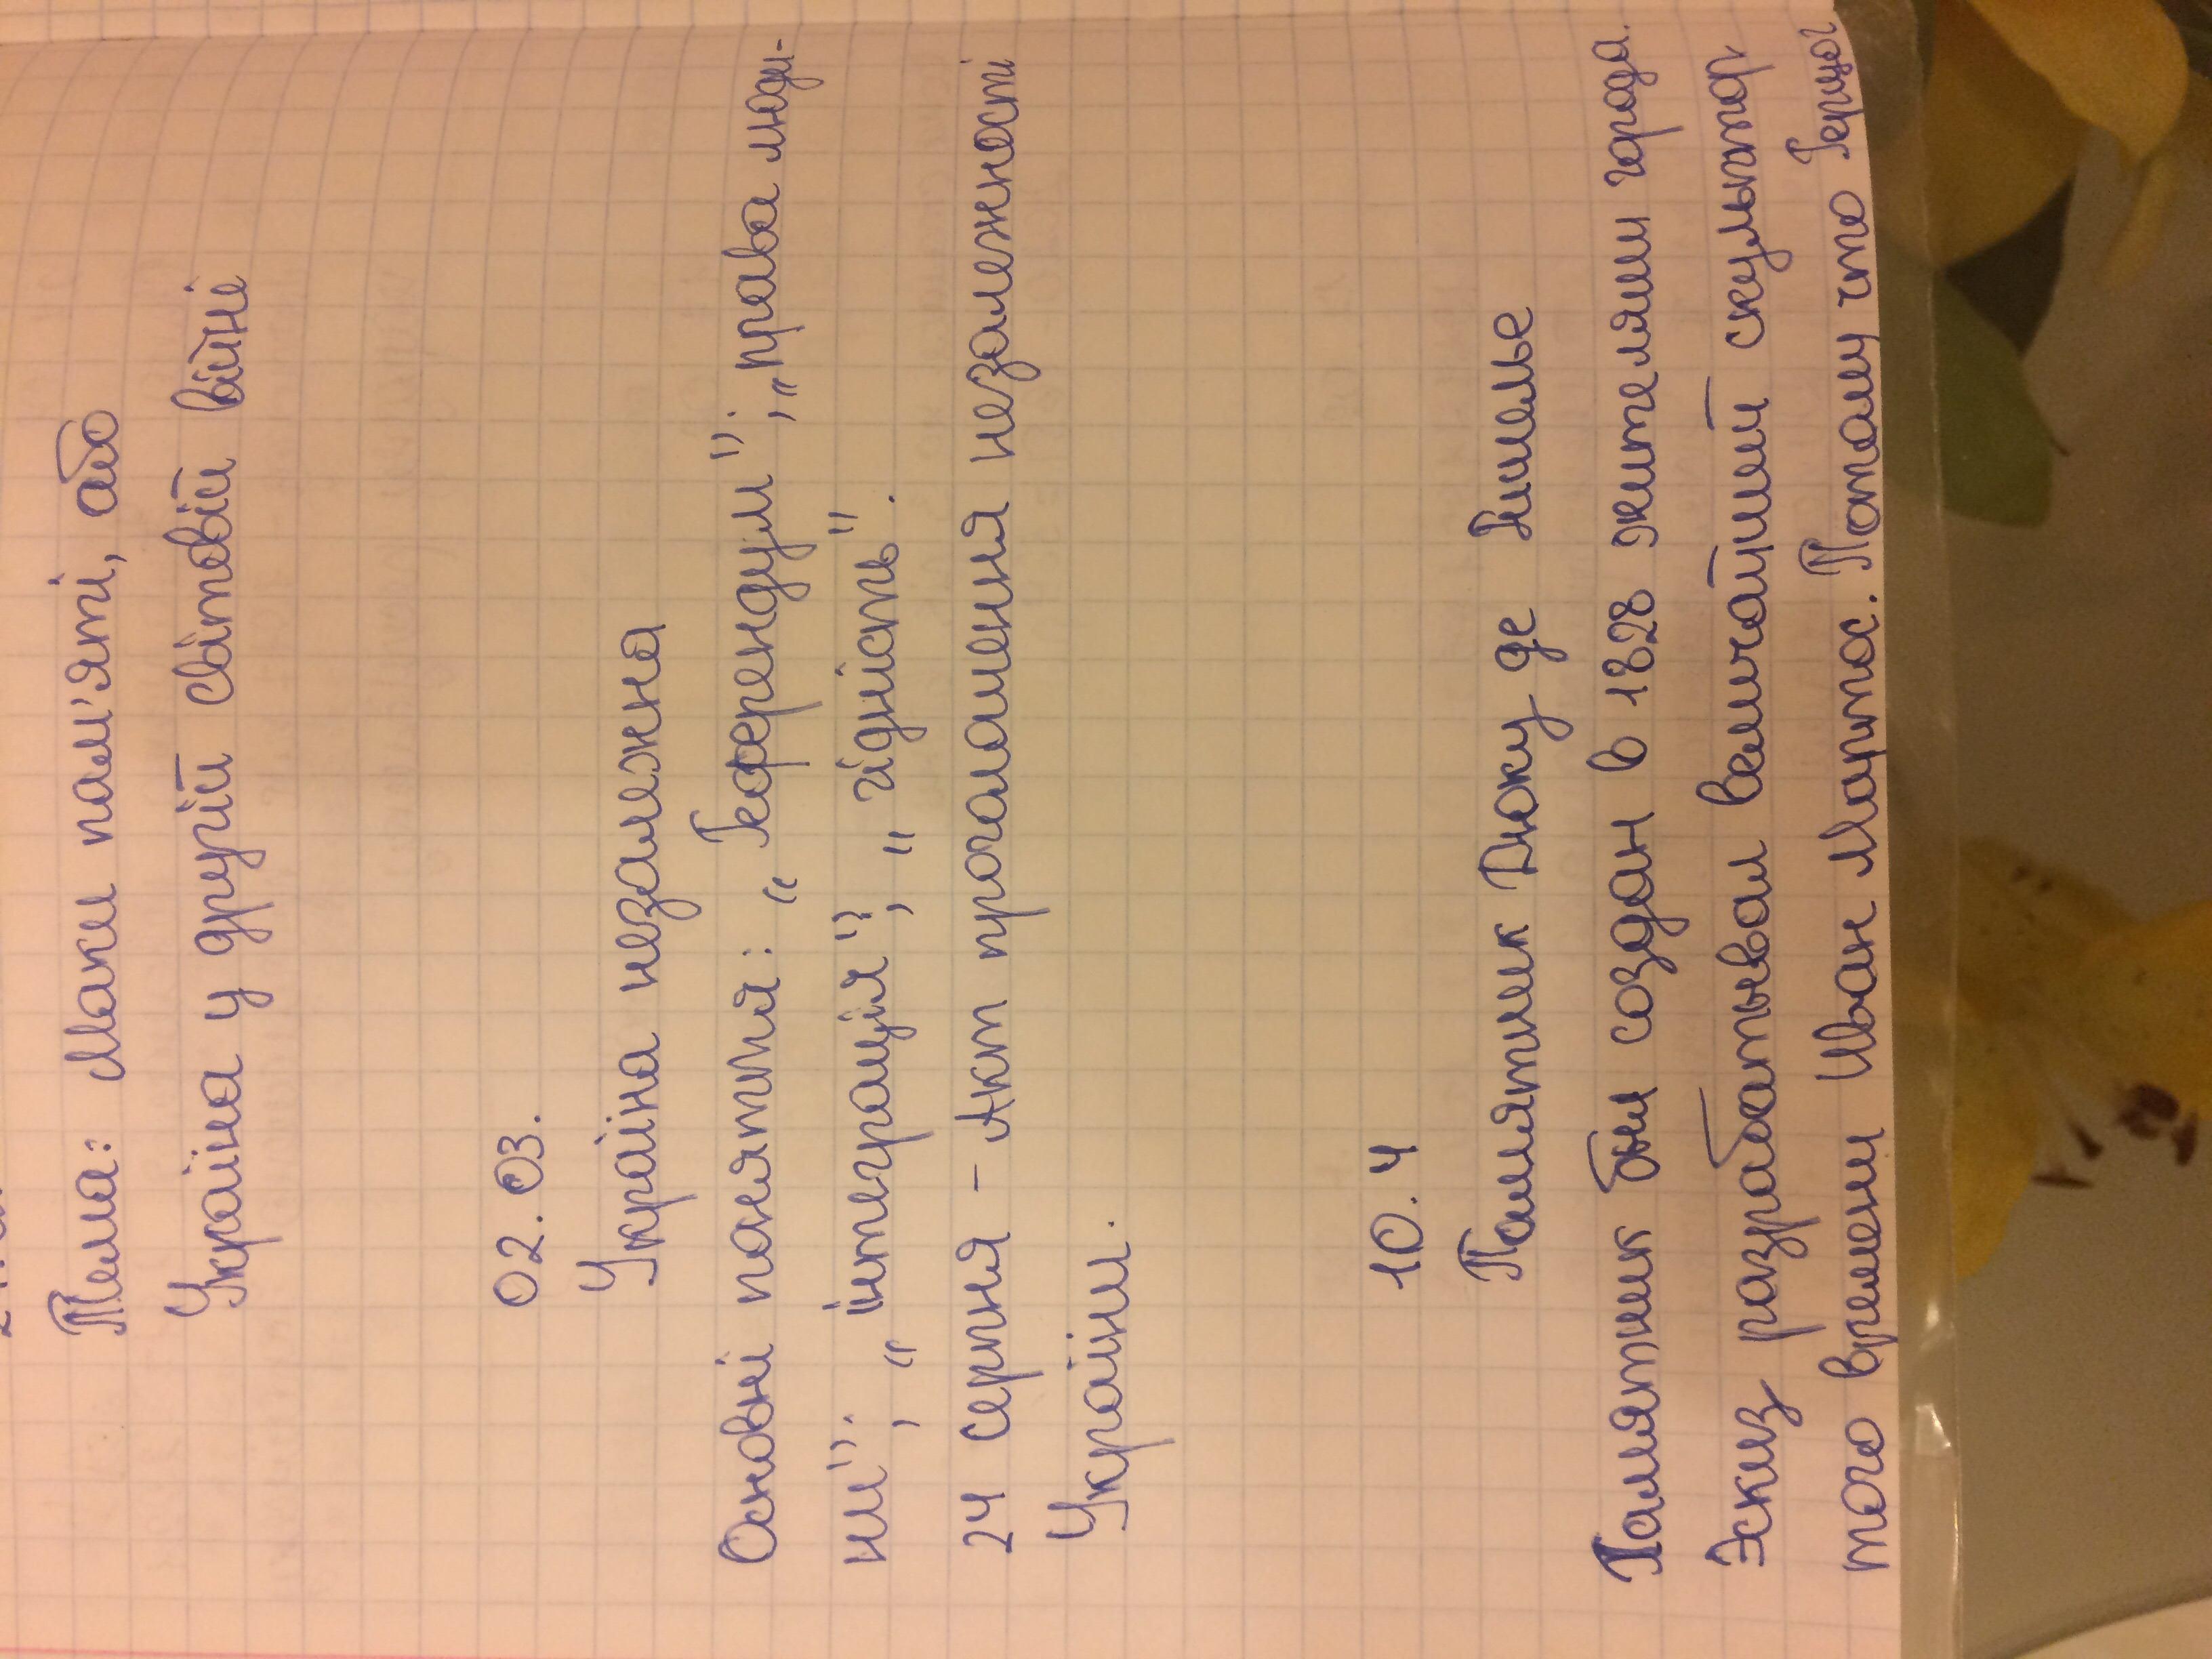 Тема: Маки пам'яті, або
Україна у другій світовій війні
02.03.
Україна незалежна
Основні поняття: „Референдум"; „права люди-
ни"; „інтеграція"; „гідність".
24 серпня – Акт проголошення незалежності
України.
10.4
Памятник Дюку де Ришелье
Памятник был создан в 1828 жителями города.
Эскиз разрабатывал величайший скульптор
того времени Иван Мартос. Потому что Герцог